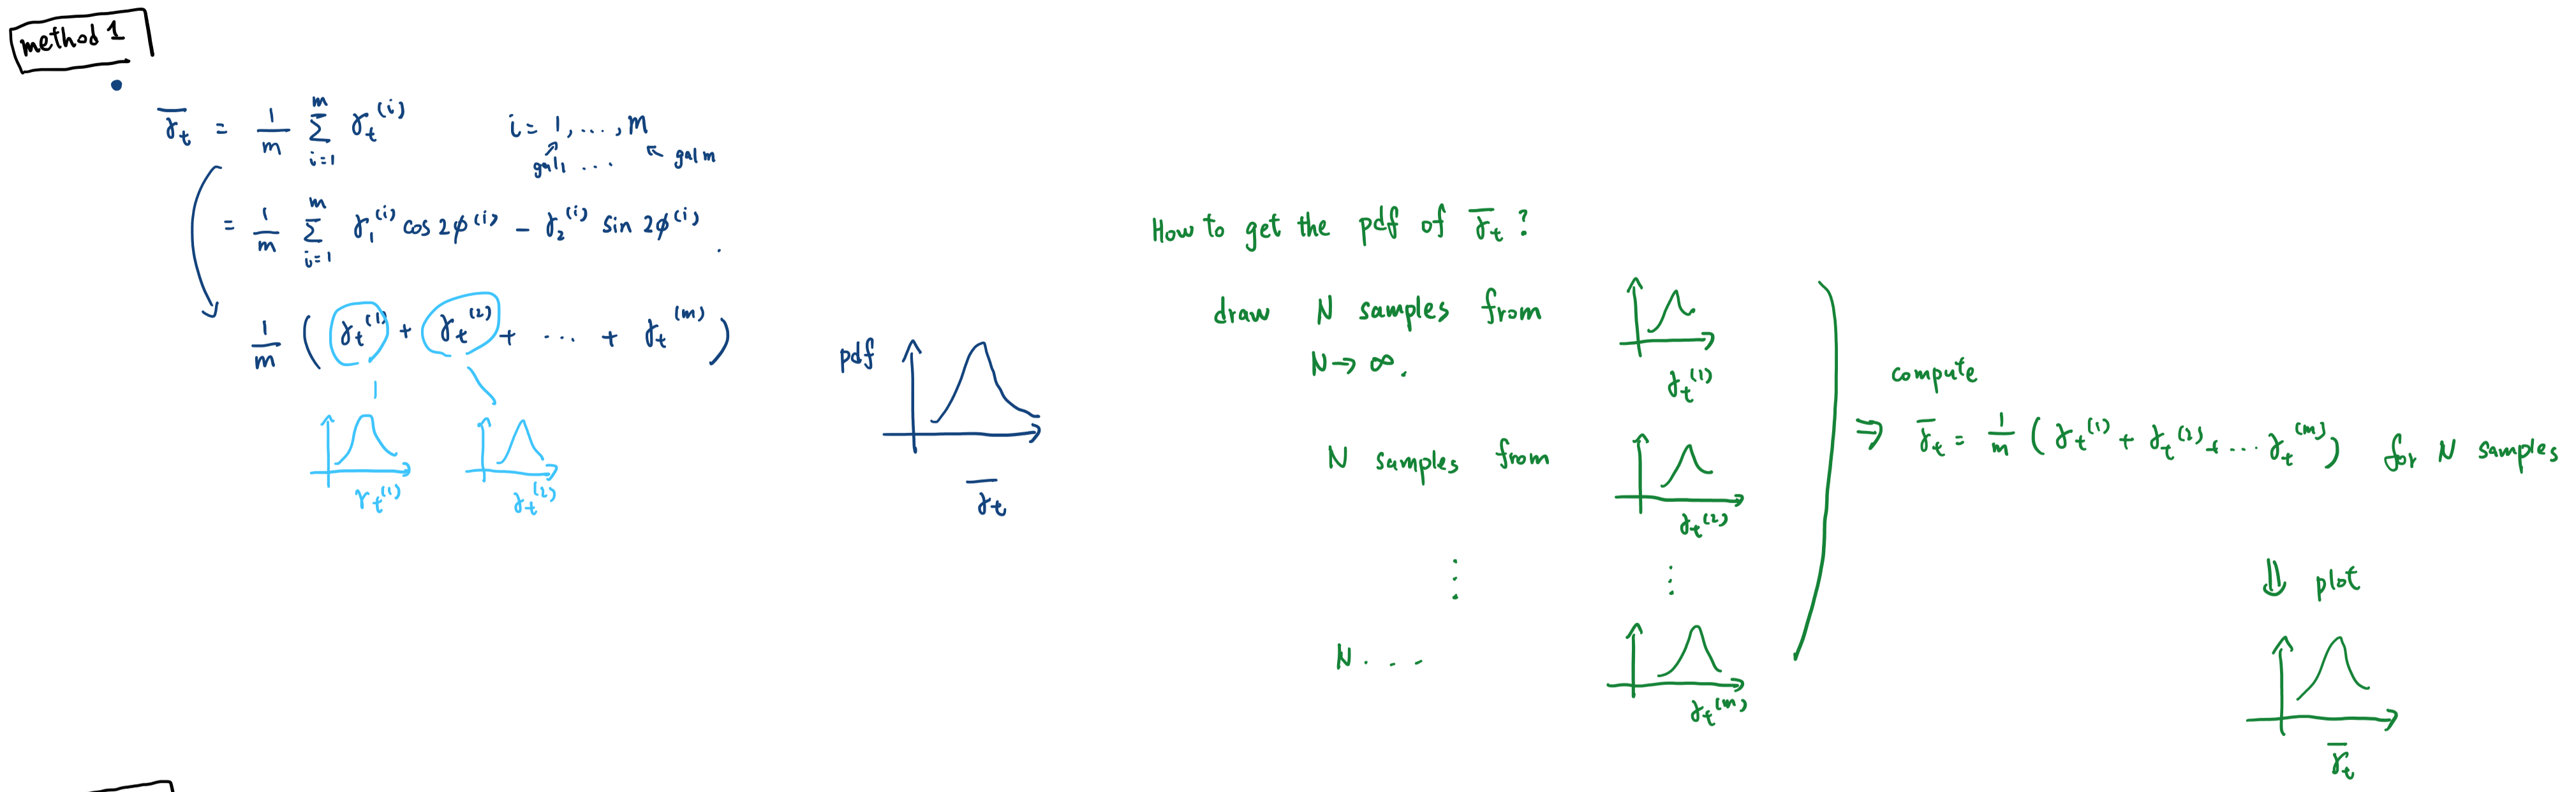 method 1
γ̄_t = 1/m Σ_{i=1}^{m} γ_t^{(i)}    i = 1, ..., m
gal1 ... gal m
= 1/m Σ_{i=1}^{m} γ_1^{(i)} cos 2φ^{(i)} - γ_2^{(i)} sin 2φ^{(i)} .
1/m ( γ_t^{(1)} + γ_t^{(2)} + ... + γ_t^{(m)} )
γ_t^{(1)}    γ_t^{(2)}
pdf
γ̄_t
How to get the pdf of γ̄_t ?
draw N samples from
N → ∞ .
γ_t^{(1)}
N samples from
γ_t^{(2)}
⋮    ⋮
N . . .
γ_t^{(m)}
compute
⇒ γ̄_t = 1/m ( γ_t^{(1)} + γ_t^{(2)} + ... γ_t^{(m)} ) for N samples
⇓ plot
γ̄_t